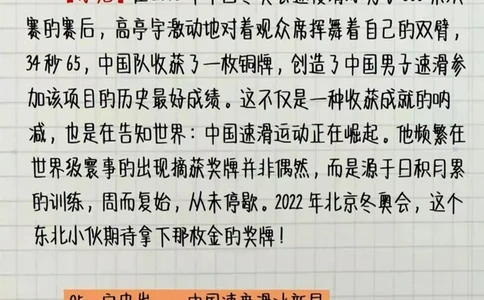 赛的赛后，高亭宇激动地对着观众席挥舞着自己的双臂，
34秒65，中国队收获了一枚铜牌，创造了中国男子速滑参
加该项目的历史最好成绩。这不仅是一种收获成就的呐
减，也是在告知世界：中国速滑运动正在崛起。他频繁在
世界级赛事的出现摘获奖牌并非偶然，而是源于日积月累
的训练，周而复始，从未停歇。2022年北京冬奥会，这个
东北小伙期待拿下那枚金的奖牌！